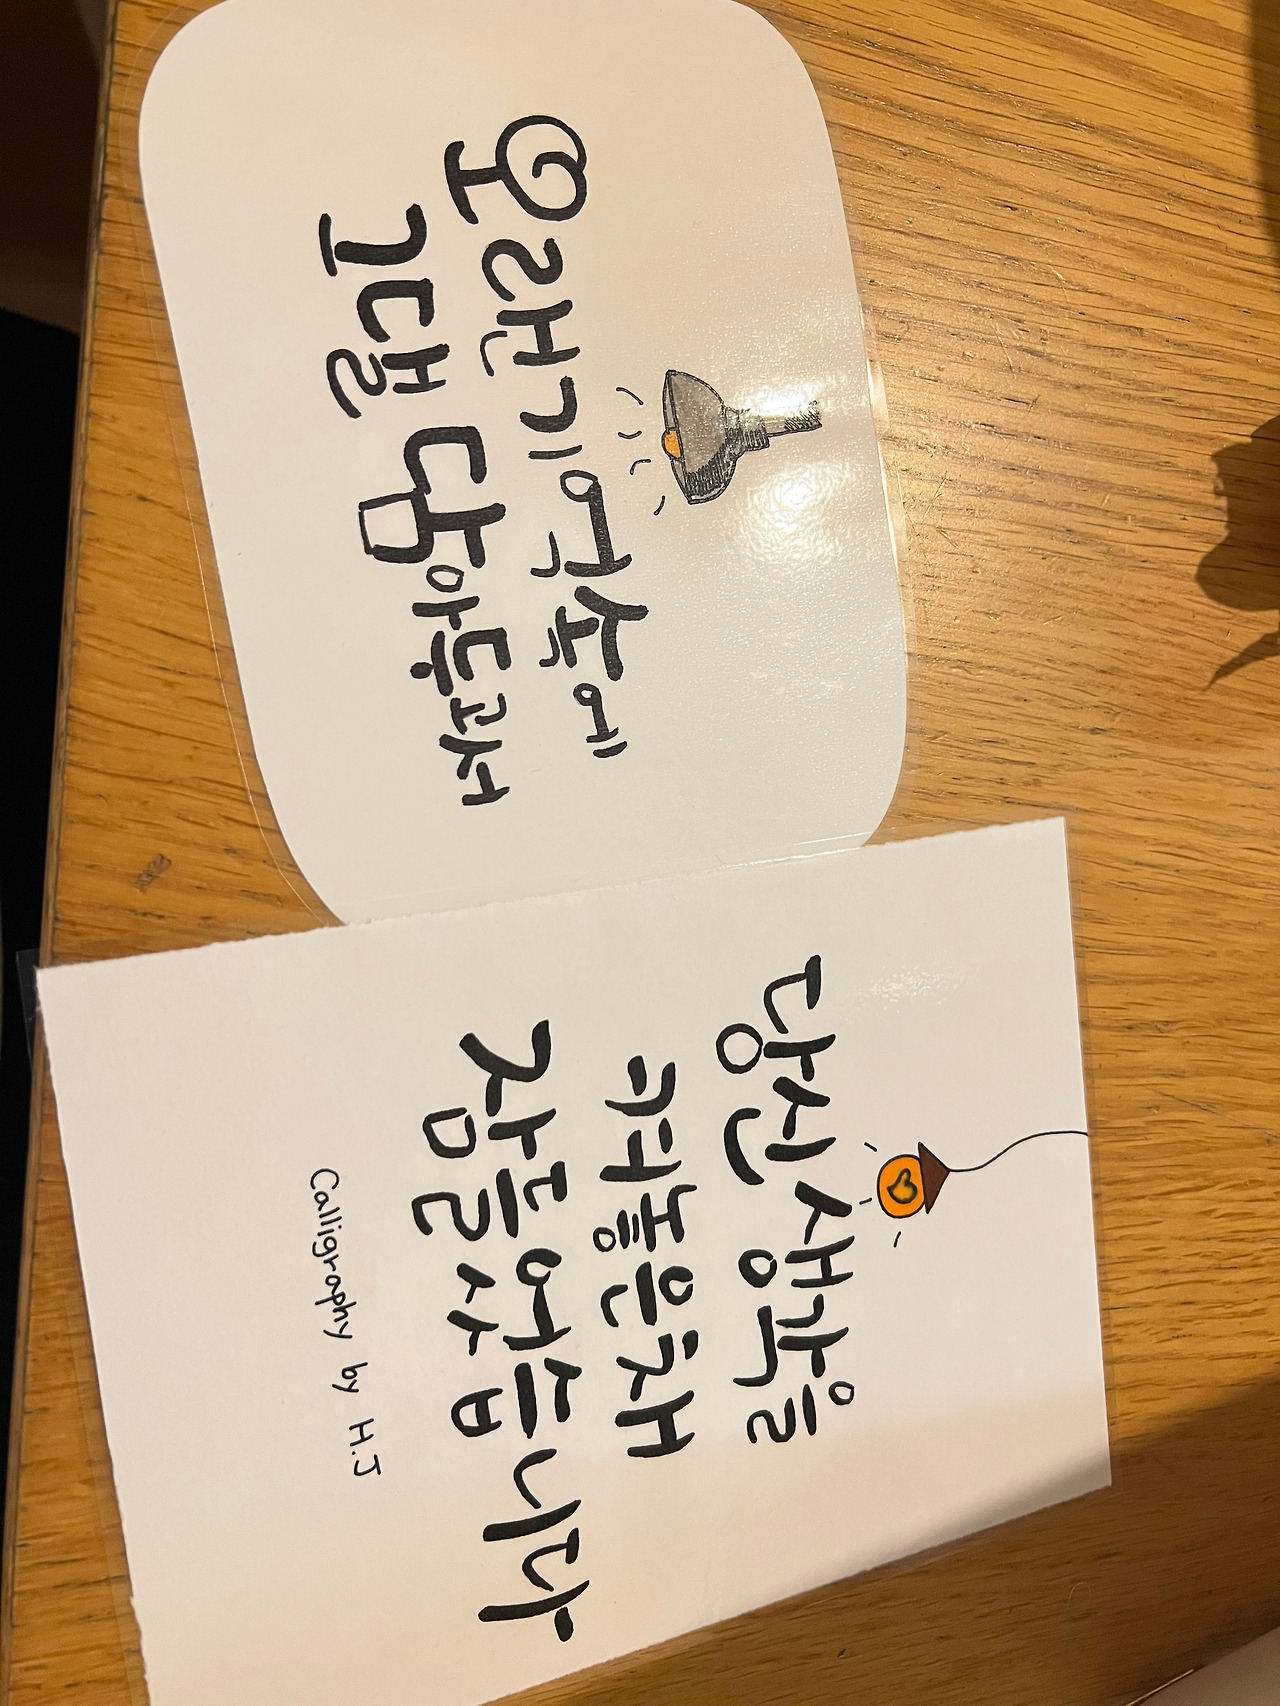 오랜기억속에
그댈 담아두고서
당신 생각을
켜놓은채
잠들었습니다
Calligraphy by H.J